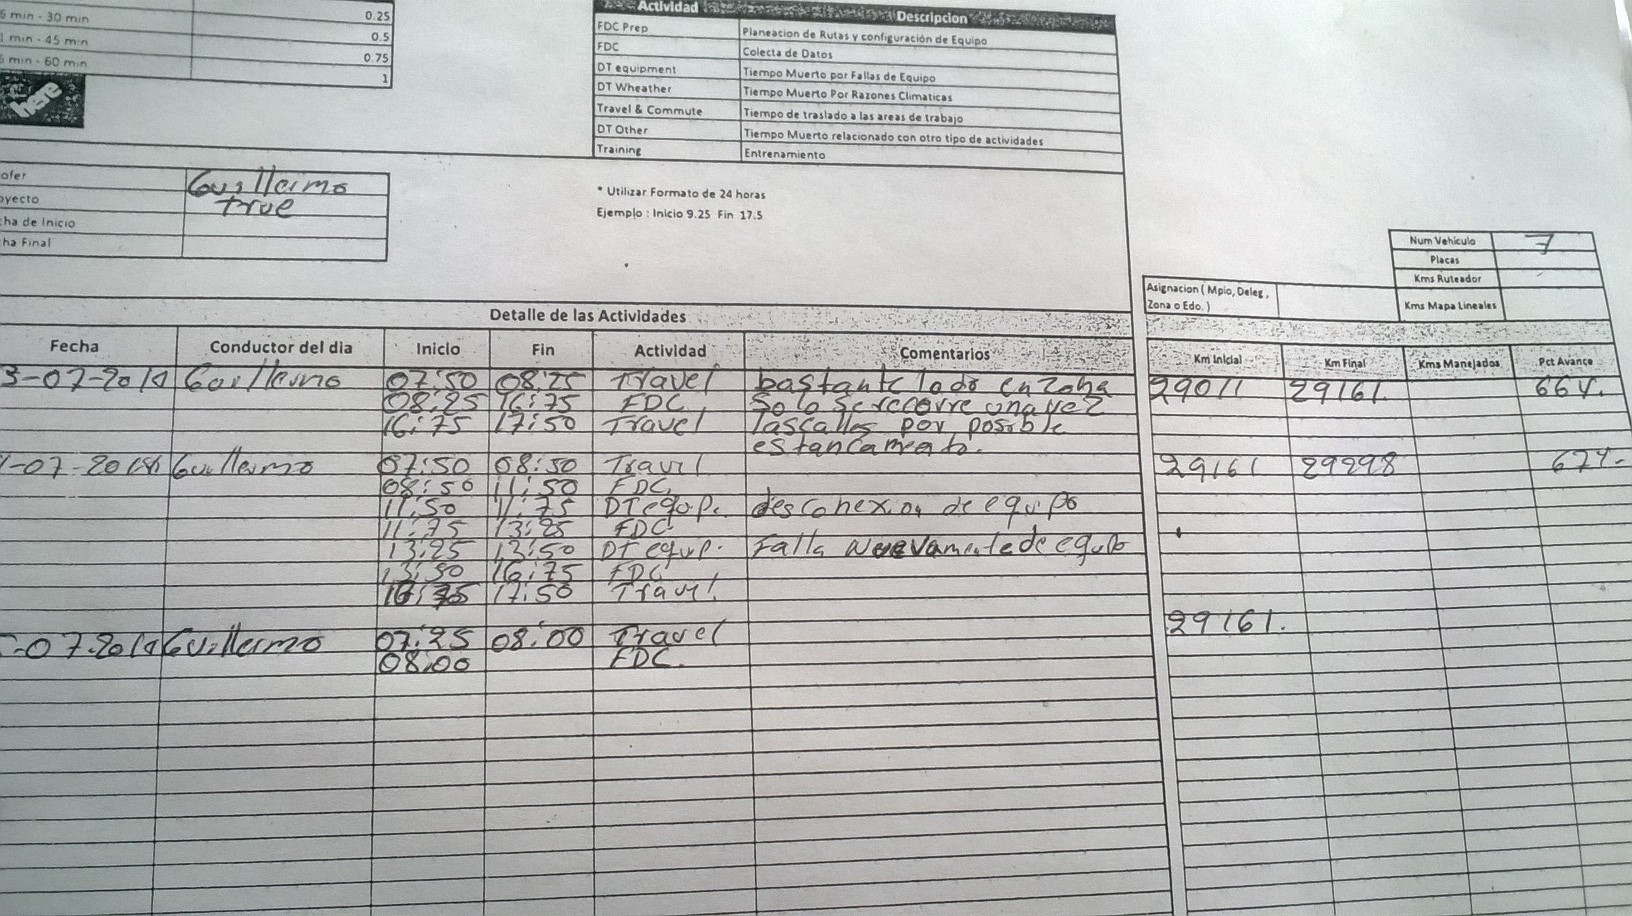 5 min - 30 min 0.25
1 min - 45 min 0.5
5 min - 60 min 0.75
1
here
Actividad Descripcion
FDC Prep Planeacion de Rutas y configuración de Equipo
FDC Colecta de Datos
DT equipment Tiempo Muerto por Fallas de Equipo
DT Wheather Tiempo Muerto Por Razones Climaticas
Travel & Commute Tiempo de traslado a las areas de trabajo
DT Other Tiempo Muerto relacionado con otro tipo de actividades
Training Entrenamiento
ofer Guillermo
oyecto true
cha de Inicio
ha Final
* Utilizar Formato de 24 horas
Ejemplo : Inicio 9.25 Fin 17.5
Num Vehiculo 7
Placas
Kms Ruteador
Kms Mapa Lineales
Asignacion ( Mpio, Deleg,
Zona o Edo. )
Detalle de las Actividades
Fecha Conductor del dia Inicio Fin Actividad Comentarios Km Inicial Km Final Kms Manejados Pct Avance
3-07-2014 Guillermo 07:50 08:25 Travel bastante lodo en zona 29011 29161. 66%.
08:25 16:75 FDC solo se recorre una vez
16:75 17:50 Travel las calles por posible
estancamiento.
-07-2014 Guillermo 07:50 08:50 Travel 29161 29298 67%.
08:50 11:50 FDC
11:50 11:75 DT equp. desconexion de equipo
11:75 13:25 FDC
13:25 13:50 DT equp. Falla Nuevamente de equipo
13:50 16:75 FDC
16:75 17:50 Travel
29161.
-07-2014 Guillermo 07:25 08:00 Travel
08:00 FDC.